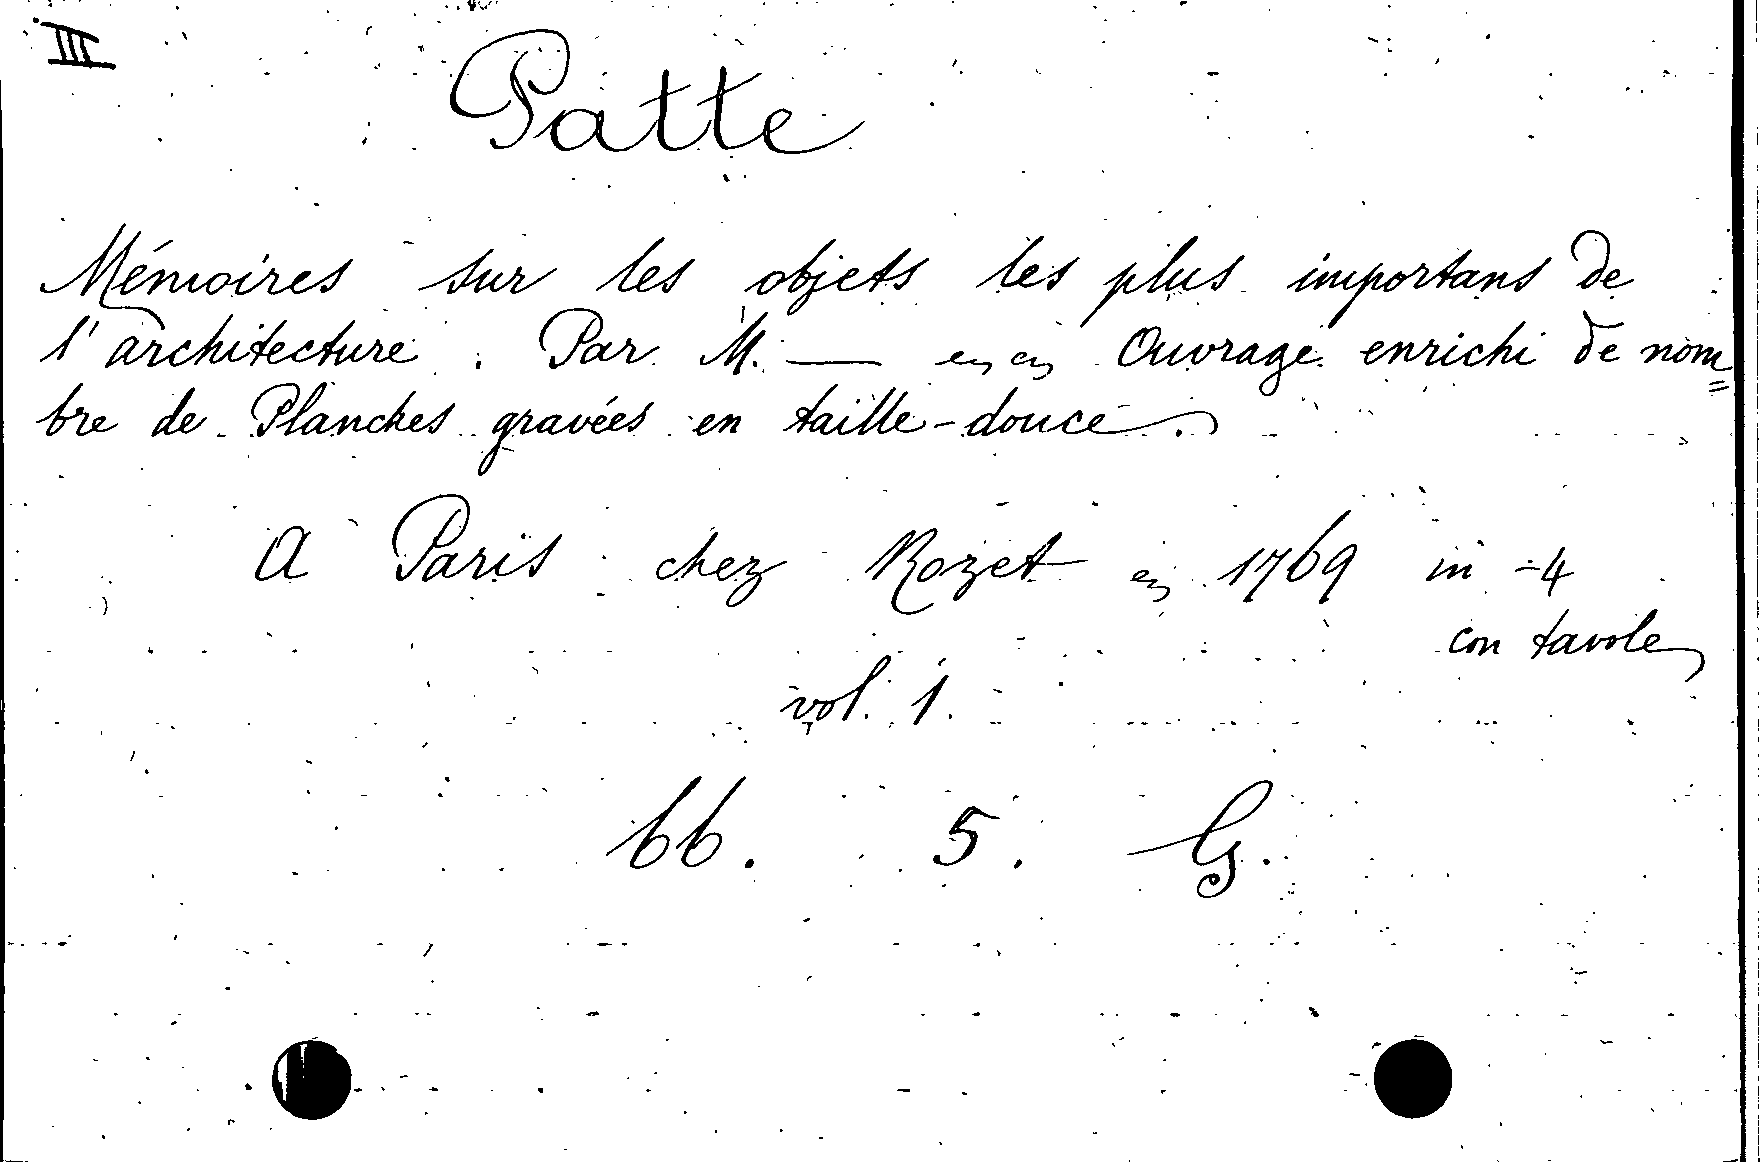 III
Patte
Mémoires sur les objets les plus importans de
l'architecture. Par M. — Ouvrage enrichi de nom=
bre de Planches gravées en taille-douce.
A Paris chez Rozet 1769 in-4
con tavole
vol. 1.
66. 5. G.